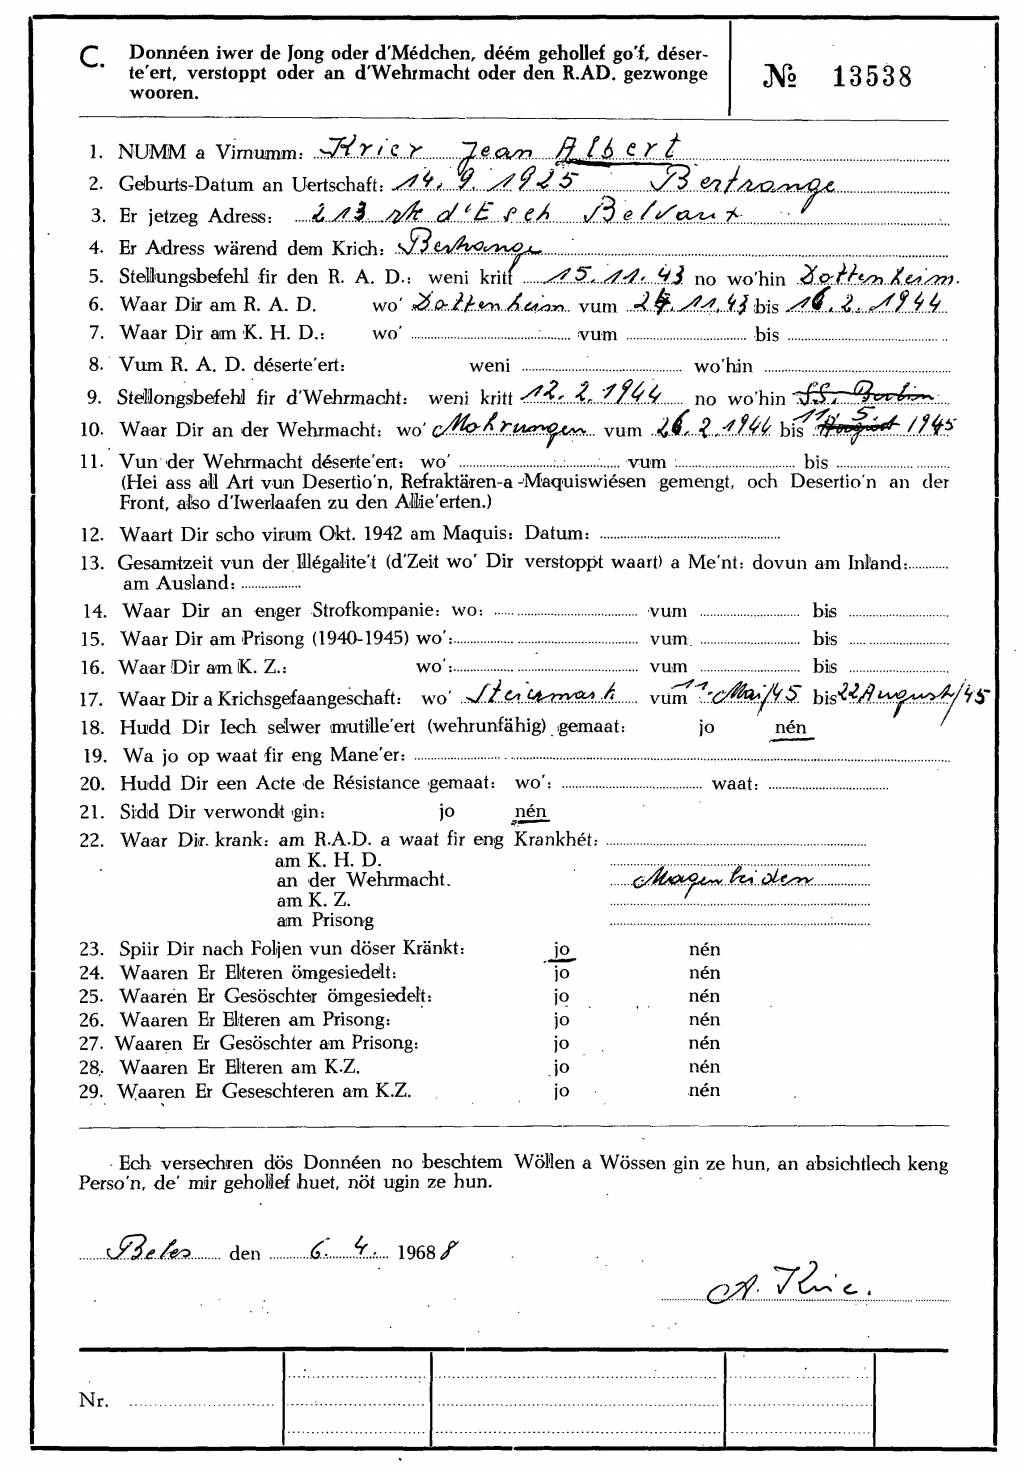 C. Donnéen iwer de Jong oder d'Médchen, déém gehollef go'f, déser-
te'ert, verstoppt oder an d'Wehrmacht oder den R.AD. gezwonge
wooren.
№ 13538
1. NUMM a Virnumm: Krier Jean Albert
2. Geburts-Datum an Uertschaft: 14. 9. 1925 Bertrange
3. Er jetzeg Adress: 213 rte d'Esch Belvaux
4. Er Adress wärend dem Krich: Bertrange
5. Stellungsbefehl fir den R. A. D.: weni kritt 15. 11. 43 no wo'hin Dottenheim.
6. Waar Dir am R. A. D. wo' Dottenheim vum 24. 11. 43 bis 16. 2. 1944
7. Waar Dir am K. H. D.: wo' vum bis
8. Vum R. A. D. déserte'ert: weni wo'hin
9. Stellongsbefehl fir d'Wehrmacht: weni kritt 12. 2. 1944 no wo'hin SS. Berlin
10. Waar Dir an der Wehrmacht: wo' Mohrungen vum 26. 2. 1944 bis 11. 5. 1945
11. Vun der Wehrmacht déserte'ert: wo' vum bis
(Hei ass all Art vun Desertio'n, Refraktären-a-Maquiswiésen gemengt, och Desertio'n an der
Front, also d'Iwerlaafen zu den Allie'erten.)
12. Waart Dir scho virum Okt. 1942 am Maquis: Datum:
13. Gesamtzeit vun der Illégalite't (d'Zeit wo' Dir verstoppt waart) a Me'nt: dovun am Inland:
am Ausland:
14. Waar Dir an enger Strofkompanie: wo: vum bis
15. Waar Dir am Prisong (1940-1945) wo': vum bis
16. Waar Dir am K. Z.: wo': vum bis
17. Waar Dir a Krichsgefaangeschaft: wo' Steiermark vum 11. Mai/45 bis 22 August/45
18. Hudd Dir Iech selwer mutille'ert (wehrunfähig) gemaat: jo nén
19. Wa jo op waat fir eng Mane'er:
20. Hudd Dir een Acte de Résistance gemaat: wo': waat:
21. Sidd Dir verwondt gin: jo nén
22. Waar Dir krank: am R.A.D. a waat fir eng Krankhét:
am K. H. D.
an der Wehrmacht. Magenleiden
am K. Z.
am Prisong
23. Spiir Dir nach Foljen vun döser Kränkt: jo nén
24. Waaren Er Elteren ömgesiedelt: jo nén
25. Waaren Er Gesöschter ömgesiedelt: jo nén
26. Waaren Er Elteren am Prisong: jo nén
27. Waaren Er Gesöschter am Prisong: jo nén
28. Waaren Er Elteren am K.Z. jo nén
29. Waaren Er Geseschteren am K.Z. jo nén
Ech versechren dös Donnéen no beschtem Wöllen a Wössen gin ze hun, an absichtlech keng
Perso'n, de' mir gehollef huet, nöt ugin ze hun.
Beles den 6. 4. 1968 8
A. Krie.
Nr.